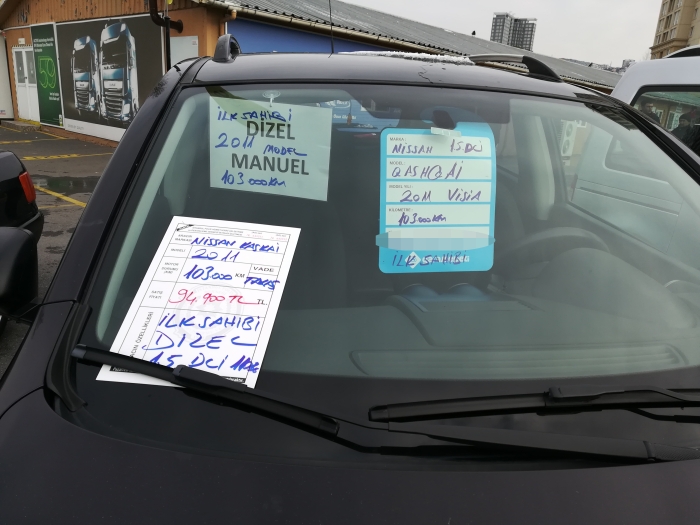 59
İLK SAHİBİ
DİZEL
2011 MODEL
MANUEL
103 000 KM
MARKA:
NISSAN 1.5 DCİ
MODEL:
QASHQAİ
MODEL YILI:
2011 VİSİA
KİLOMETRE:
103000
İLK SAHİBİ
NİSSAN KAŞKAİ
2011
VADE
103000 KM
94.900 TL TL
İLK SAHİBİ
DİZEL
1.5 DCİ